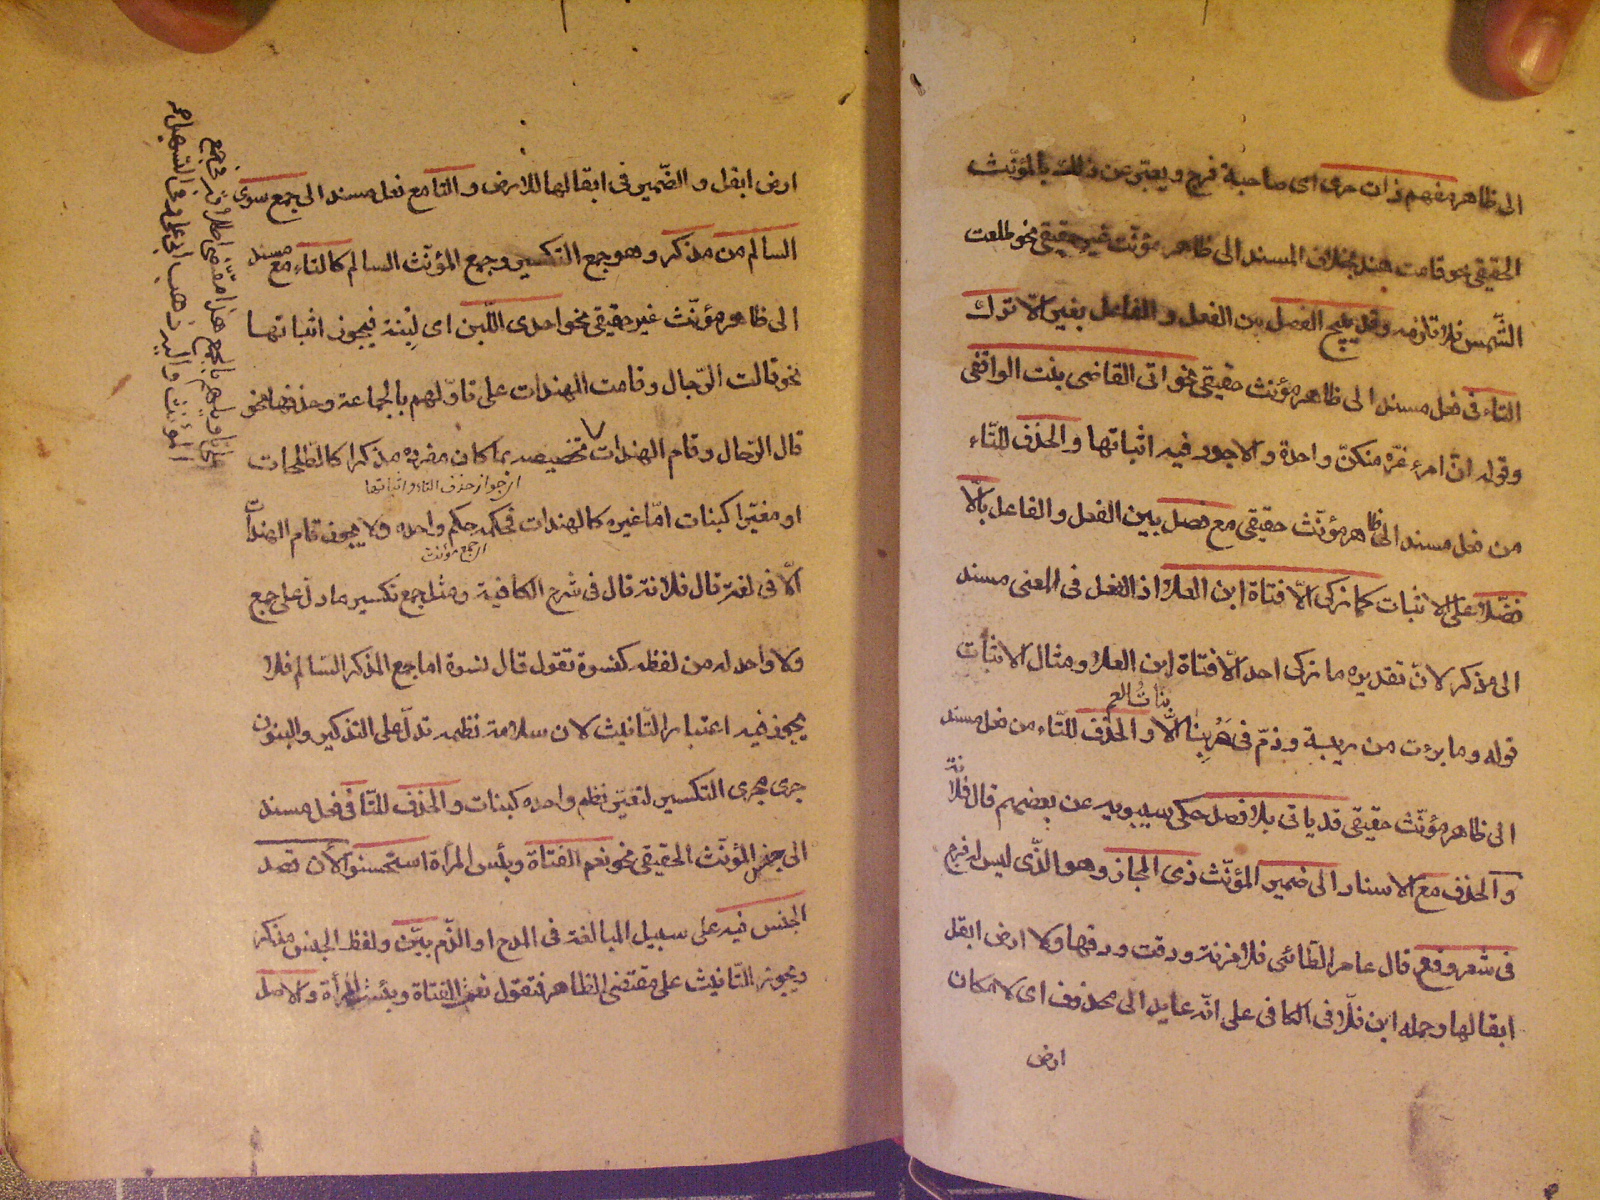 الى ظاهر مفهم ذات حر اى صاحبة فرج ويعبّر عن ذلك بالمؤنّث
الحقيقى نحو قامت هند بخلاف المسند الى ظاهر مؤنّث غير حقيقى نحو طلعت
الشّمس فلا تلزمه وقد يبيح الفصل بين الفعل والفاعل بغير الّا ترك
التاء فى فعل مسند الى ظاهر مؤنث حقيقى نحو اتى القاضى بنت الواقفى
وقوله انّ امرء غرّه منكنّ واحدة والاجود فيه اثباتها والحذف للتّاء
من فعل مسند الى ظاهر مؤنّث حقيقى مع فصل بين الفعل والفاعل بالّا
فضّلا على الاثبات كما زكى الّا فتاة ابن العلا اذ الفعل فى المعنى مسند
الى مذكر لانّ تقديره ما زكى احد الّا فتاة ابن العلا ومثال الاثبات
قوله وما برءت من ريبة وذمّ فى حَرْبِنا الّا والحذف للتّاء من فعل مسند
بناتُ العم
الى ظاهر مؤنّث حقيقى قد ياتى بلا فصل حكى سيبويه عن بعضهم قال فلانة
والحذف مع الاسناد الى ضمير المؤنّث ذى المجاز وهو الذّى ليس له فرج
فى شعر وقع قال عامر الطّائى فلا مزنة ودقت ودقها ولا ارض ابقل
ابقالها وحمله ابن فلّاح فى الكافى على انّه عايد الى محذوف اى لا مكان
ارض
ارض ابقل والضّمير فى ابقالها للارض والتا مع فعل مسند الى جمع سوى
السالم من مذكر وهو جمع التكسير وجمع المؤنّث السالم كالتاء مع مسند
الى ظاهر مؤنّث غير حقيقى نحو احدى اللّبن اى لِبْنة فيجوز اثباتها
نحو قالت الرّجال وقامت الهندات على تاوّلهم بالجماعة وحذفها نحو
قال الرّجال وقام الهندات تخصيصه بما كان مفرده مذكرا كالطّلحات
اى جواز حذف التاء واثباتها
او مغيّرا كبنات امّا غيره كالهندات فحكمه حكم واحده ولا يجوز قام الهندات
اى جمع مؤنث
الّا فى لغة قال فلانة قال فى شرح الكافية ومثل جمع تكسير ما دل على جمع
ولا واحد له من لفظه كنسوة تقول قال نسوة اما جمع المذكر السّالم فلا
يجوز فيه اعتبار التّانيث لان سلامة نظمه تدلّ على التذكير والبنون
جرى مجرى التكسير لتغيّر نظم واحده كبنات والحذف للتّا فى فعل مسند
الى جنس المؤنّث الحقيقى نحو نعم الفتاة وبئس المرأة استحسنوا لأن قصد
الجنس فيه على سبيل المبالغة فى المدح او الذّم بيّن ولفظ الجنس مذكر
ويجوز التّانيث على مقتضى الظاهر فتقول نعمت الفتاة وبئست المرأة والاصل